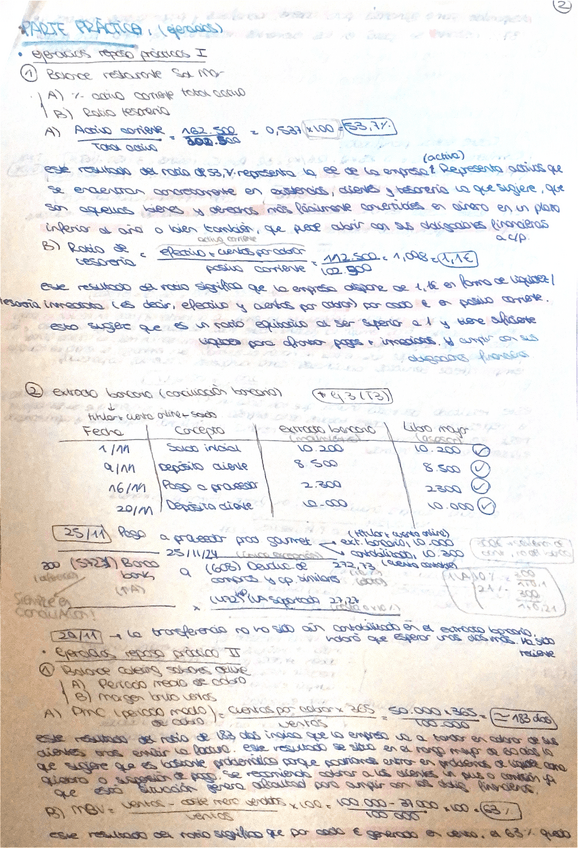 2
PARTE PRÁCTICA. (ejercicios)
• ejercicios repaso prácticos I
① Balance restaurante Sol Mar
A) % activo corriente total activo
B) Ratio tesorería
A) Activo corriente / Total activo = 162.500 / 302.500 = 0,537 x100 = 53,7%
(activo)
este resultado del ratio de 53,7% representa la de la empresa. Representa activos que
se encuentran concretamente en existencias, clientes y tesorería lo que sugiere, que
son aquellos bienes y derechos más fácilmente convertidos en dinero en un plazo
inferior al año o bien también, que puede cubrir con sus obligaciones financieras
a c/p.
activo corriente
B) Ratio de tesorería = efectivo + cuentas por cobrar / pasivo corriente = 112.500 / 102.500 = 1,098 ≈ 1,1€
este resultado del ratio significa que la empresa dispone de 1,1€ en forma de liquidez/
tesorería inmediata (es decir, efectivo y cuentas por cobrar) por cada € en pasivo corriente.
esto sugiere que es un ratio equitativo al ser superior a 1 y tiene suficiente
liquidez para afrontar pagos + inmediatos y cumplir con sus
obligaciones financieras
② extracto bancario (conciliación bancaria)
+ ej 3 (T3)
titular + cuenta online + saldo
Fecha Concepto extracto bancario Libro mayor
1/11 Saldo inicial 10.200 10.200
9/11 Depósito cliente 8.500 8.500
16/11 Pago a proveedor 2.300 2300
20/11 Depósito cliente 10.000 10.000
25/11 Pago a proveedor prod gourmet
(titular + cuenta online)
ext. bancario, 10.000
contabilizado, 10.300
25/11/24
300 (572) Banco a (608) Devoluc de compras y op. similares 272,73
(472) IVA soportado 27,27
Siempre en conciliación!
IVA 10%
21%
29/11 → La transferencia no ha sido aún contabilizada en el extracto bancario
habrá que esperar unos días más. Ha sido
reciente
• Ejercicios repaso práctico II
① Balance catering sabores
A) Periodo medio de cobro
B) Margen bruto ventas
A) PMC (periodo medio de cobro) = cuentas por cobrar x 365 / ventas = 50.000 x 365 / 100.000 = ≈ 183 días
este resultado del ratio de 183 días indica que la empresa va a tardar en cobrar de sus
clientes tras emitir la factura. este resultado se sitúa en el rango mayor de 60 días lo
que sugiere que es bastante problemático porque podríamos entrar en problemas de liquidez como
quiebra o suspensión de pago. Se recomienda cobrar a los clientes en plus o comisión ya
que esta situación genera dificultad para cumplir con las financieras.
B) MBV = ventas - coste merc vendidas / ventas x 100 = 100.000 - 37.000 / 100.000 x 100 = 63%
este resultado del ratio significa que por cada € generado en venta, el 63% queda